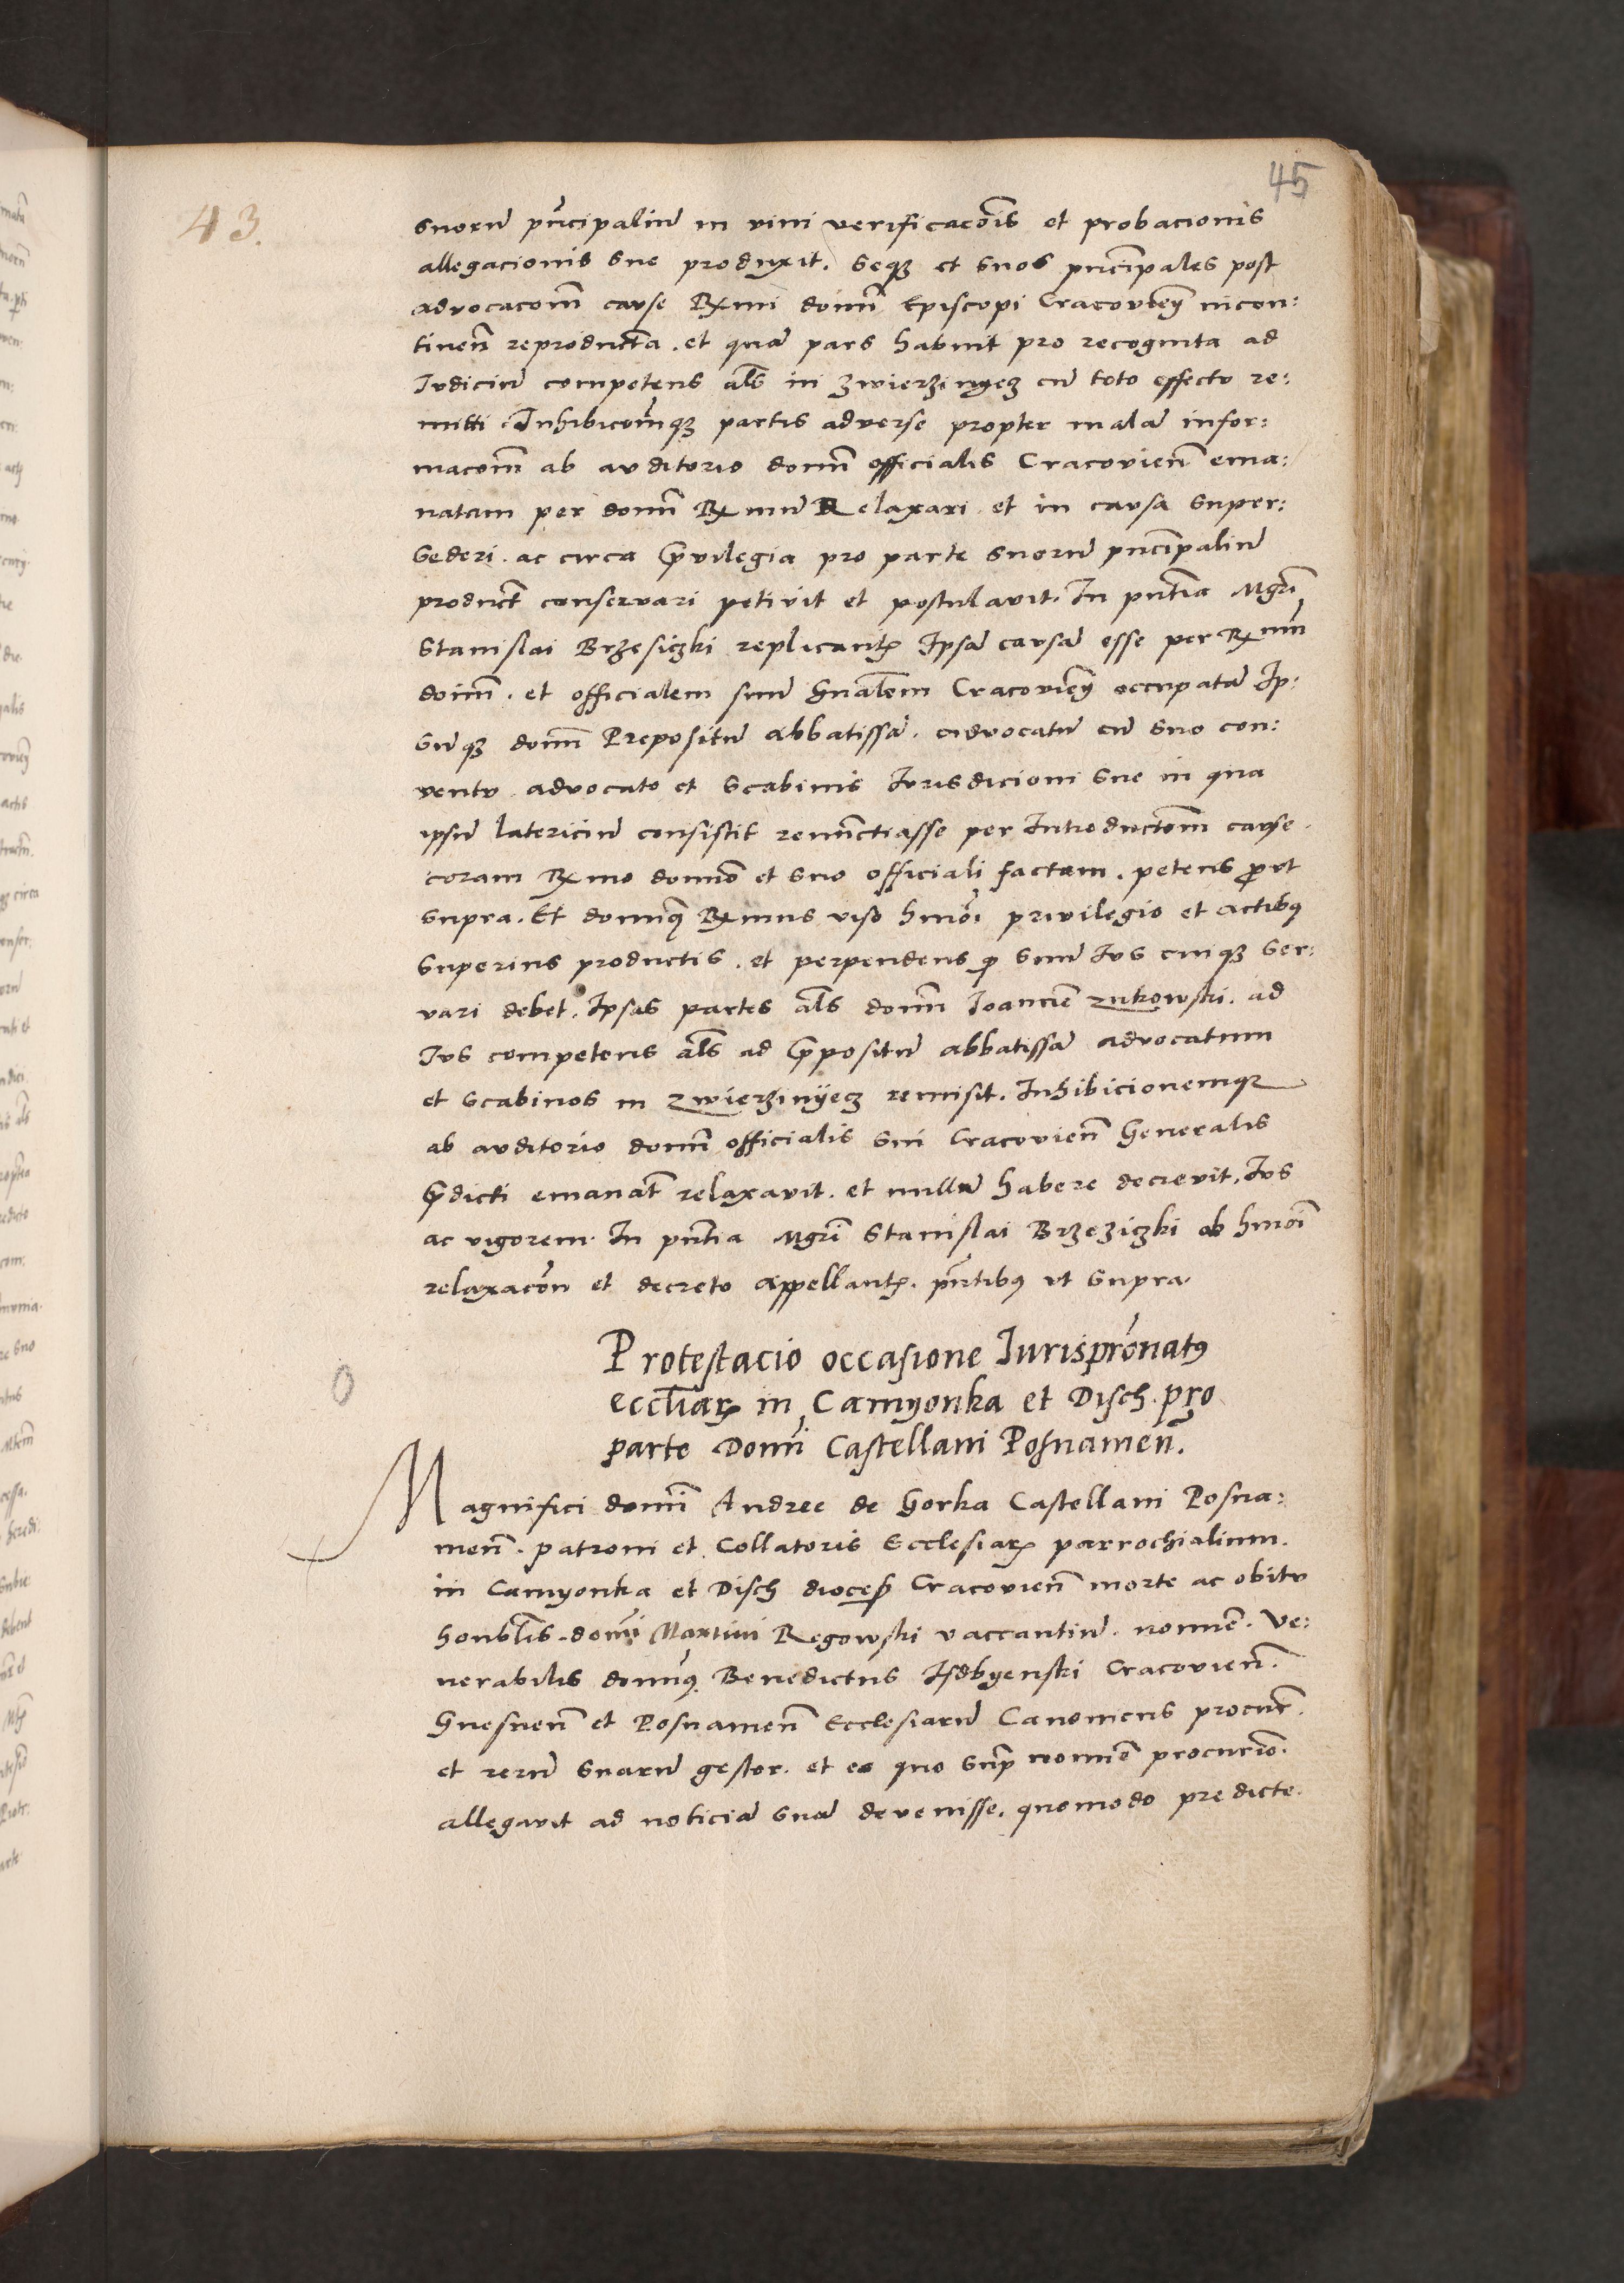 45
43.
suorũ pñcipaliũ in vim verificacõis et probacionis
allegacionis sue produxit. seqꝫ et suos pñcipales post
advocacoñ cause Rx̃mi domñ Episcopi Cracovieñ incon:
tineñ reproducta. et quã pars habuit pro recognita ad
Judiciũ competens als in Zwierzinyecz cũ toto effectu re:
mitti Inhibicoñqꝫ partis adverse propter malã infor:
macoñ ab auditorio domñ officialis Cracovieñ ema:
natam per domñ Rx̃mũ Relaxari et in causa super:
sederi. ac circa p̃vilegia pro parte suorũ pñcipaliũ
product̃ conservari petivit et postulavit. In pñtia Mgrĩ
Stanislai Brzesiczki replicantꝭ Ipsã causã esse per Rx̃mũ
domñ. et officialem suũ Gñalem Cracovieñ occupatã Ip:
sũqꝫ domñ Prepositũ abbatissã. advocatũ cũ suo con:
ventu advocato et scabinis Jurisdicioni sue in qua
ipsũ latericiũ consistit renũctiasse per Introductoñ cause.
coram Rx̃mo domño et suo officiali factam. petens ꝓut
supra. Et domñqꝫ Rx̃mus viso hmõi privilegio et actibꝰ
superius productis. et perpendens ꝙ suũ Jus cuiqꝫ ser:
vari debet. Ipsas partes als domñ Joannẽ Zukowski. ad
Jus competens als ad p̃positũ abbatissã advocatum
et scabinos in Zwierzinyecz remisit. Inhibicionemque
ab auditorio domñ officialis sui Cracovieñ Generalis
p̃dicti emanat̃ relaxavit. et nullũ habere decrevit. Jus
ac vigorem. In pñtia Mgrĩ Stanislai Brzeziczki ob hmõi
relaxacõn et decreto appellantꝭ. pñtibꝰ ut supra.
Protestacio occasione Jurisprõnatꝰ
eccl̃iarꝝ in Camyonka et Disch. pro
parte Domñi Castellani Posnameñ.
Magnifici domñi Andree de Gorka Castellani Posna:
meñ. patroni et Collatoris Ecclesiarꝝ parrochialium.
in Camyonka et Disch dioceꝭ Cracovieñ morte ac obitu
honbl̃is domñi Martini Regowski vaccantiũ. nomñe. Ve:
nerabilis domñꝰ Benedictus Isdbyenski Cracovieñ.
Gnesneñ et Posnameñ Ecclesiarũ Canonicus procur̃.
et rerũ suarũ gestor. et eo quo supᷓ nomñe procurio.
allegavit ad noticiã suã devenisse. quomodo predicte.